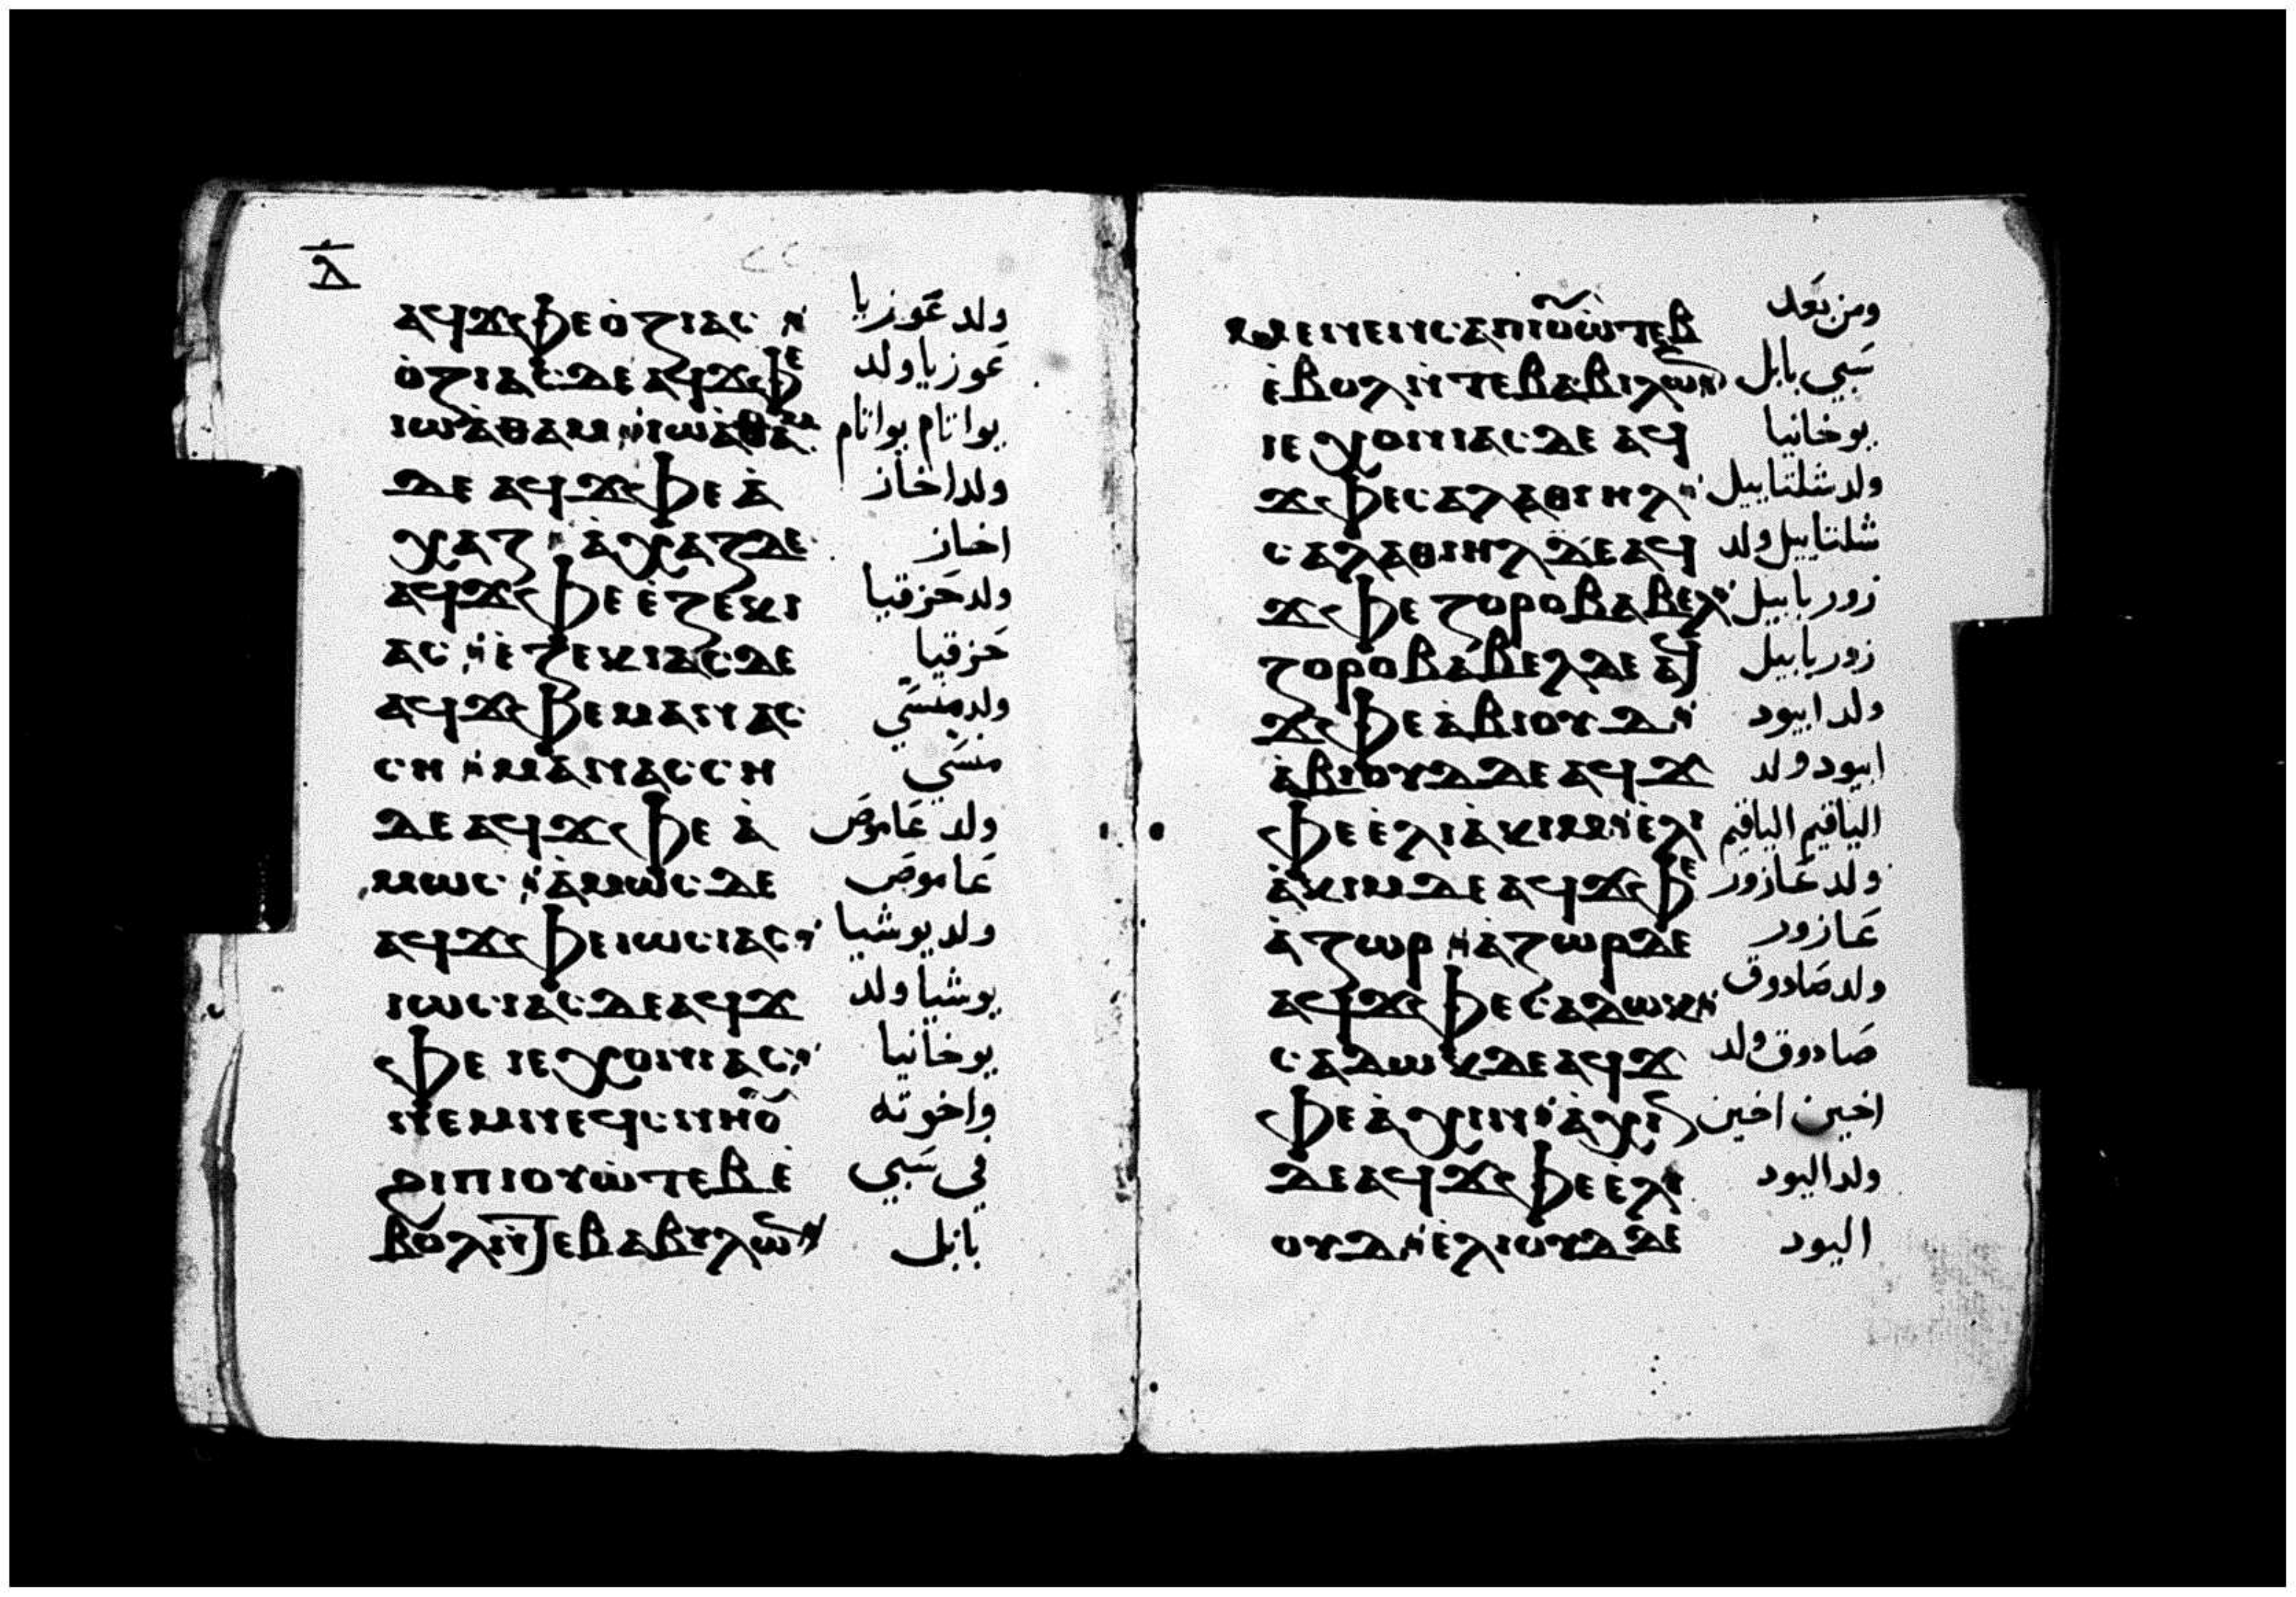 ⲇ̅
ⲁϥϫⲫⲉ ⲟ̀ⲍⲓⲁⲥ ولد عَوزيا
ⲟ̀ⲍⲓⲁⲥ ⲇⲉ ⲁϥϫⲫⲉ عَوزيا ولد
ⲓⲱⲁ̀ⲑⲁⲙ ⲓⲱⲁ̀ⲑⲁⲙ يواتام يواتام
ⲇⲉ ⲁϥϫⲫⲉ ⲁ̀ ولد اخاز
ⲭⲁⲍ ⲁ̀ⲭⲁⲍ ⲇⲉ اخاز
ⲁϥϫⲫⲉ ⲉ̀ⲍⲉⲕⲓ ولد حَزقيا
ⲁⲥ ⲉ̀ⲍⲉⲕⲓⲁⲥ ⲇⲉ حَزقيا
ⲁϥϫⲫⲉ ⲙⲁⲛⲁⲥ ولد منسَي
ⲥⲏ ⲙⲁⲛⲁⲥⲥⲏ منسَي
ⲇⲉ ⲁϥϫⲫⲉ ⲁ̀ ولد عَاموصَ
ⲙⲱⲥ ⲁ̀ⲙⲱⲥ ⲇⲉ عَاموصَ
ⲁϥϫⲫⲉ ⲓⲱⲥⲓⲁⲥ ولد يوشيا
ⲓⲱⲥⲓⲁⲥ ⲇⲉ ⲁϥϫ يوشيا ولد
ⲫⲉ ⲓⲉⲭⲟⲛⲓⲁⲥ يوخانيا
ⲛⲉⲙ ⲛⲉϥⲥⲛⲏⲟⲩ واخوته
ϩⲓ ⲡⲓⲟⲩⲱ̀ⲧⲉⲃ ⲉ̀ في سَبي
ⲃⲟⲗ ⲛ̀ϯⲉⲃⲁⲃⲩⲗⲱⲛ بابل
ⲙⲉⲛⲉⲛⲥⲁ ⲡⲓⲟⲩⲱ̀ⲧⲉⲃ ومن بَعد
ⲉ̀ⲃⲟⲗ ⲛ̀ⲧⲉ ⲃⲁⲃⲓⲗⲱⲛ سَبي بابل
ⲓⲉⲭⲟⲛⲓⲁⲥ ⲇⲉ ⲁϥ يوخانيا
ϫⲫⲉ ⲥⲁⲗⲁⲑⲓⲏⲗ ولد شلتاييل
ⲥⲁⲗⲁⲑⲓⲏⲗ ⲇⲉ ⲁϥ شلتاييل ولد
ϫⲫⲉ ⲍⲟⲣⲟⲃⲁⲃⲉⲗ زوربابيل
ⲍⲟⲣⲟⲃⲁⲃⲉⲗ ⲇⲉ ⲁϥ زوربابيل
ϫⲫⲉ ⲁ̀ⲃⲓⲟⲩⲇ ولد ابيود
ⲁ̀ⲃⲓⲟⲩⲇ ⲇⲉ ⲁϥϫ ابيود ولد
ⲫⲉ ⲉ̀ⲗⲓⲁ̀ⲕⲓⲙ ⲉ̀ⲗⲓ الياقيم الياقيم
ⲁ̀ⲕⲓⲙ ⲇⲉ ⲁϥϫⲫⲉ ولد عَازور
ⲁ̀ⲍⲱⲣ ⲁ̀ⲍⲱⲣ ⲇⲉ عَازور
ⲁϥϫⲫⲉ ⲥⲁⲇⲱⲕ ولد صَادوق
ⲥⲁⲇⲱⲕ ⲇⲉ ⲁϥϫ صَادوق ولد
ⲫⲉ ⲁ̀ⲭⲓⲛ ⲁ̀ⲭⲓⲛ اخين اخين
ⲇⲉ ⲁϥϫⲫⲉ ⲉ̀ⲗⲓ ولد اليود
ⲟⲩⲇ ⲉ̀ⲗⲓⲟⲩⲇ ⲇⲉ اليود